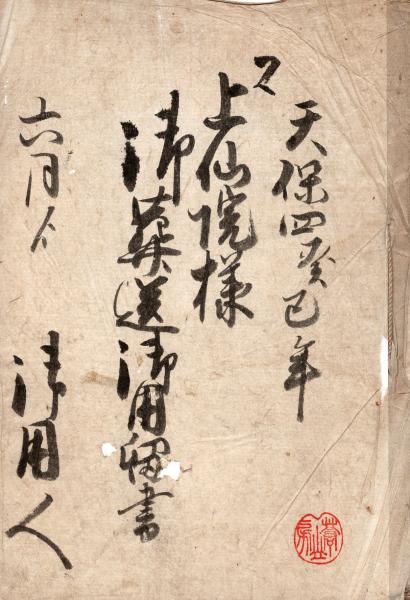 天保四癸巳年
上仙院様
御葬送御用留書
六月
御用人